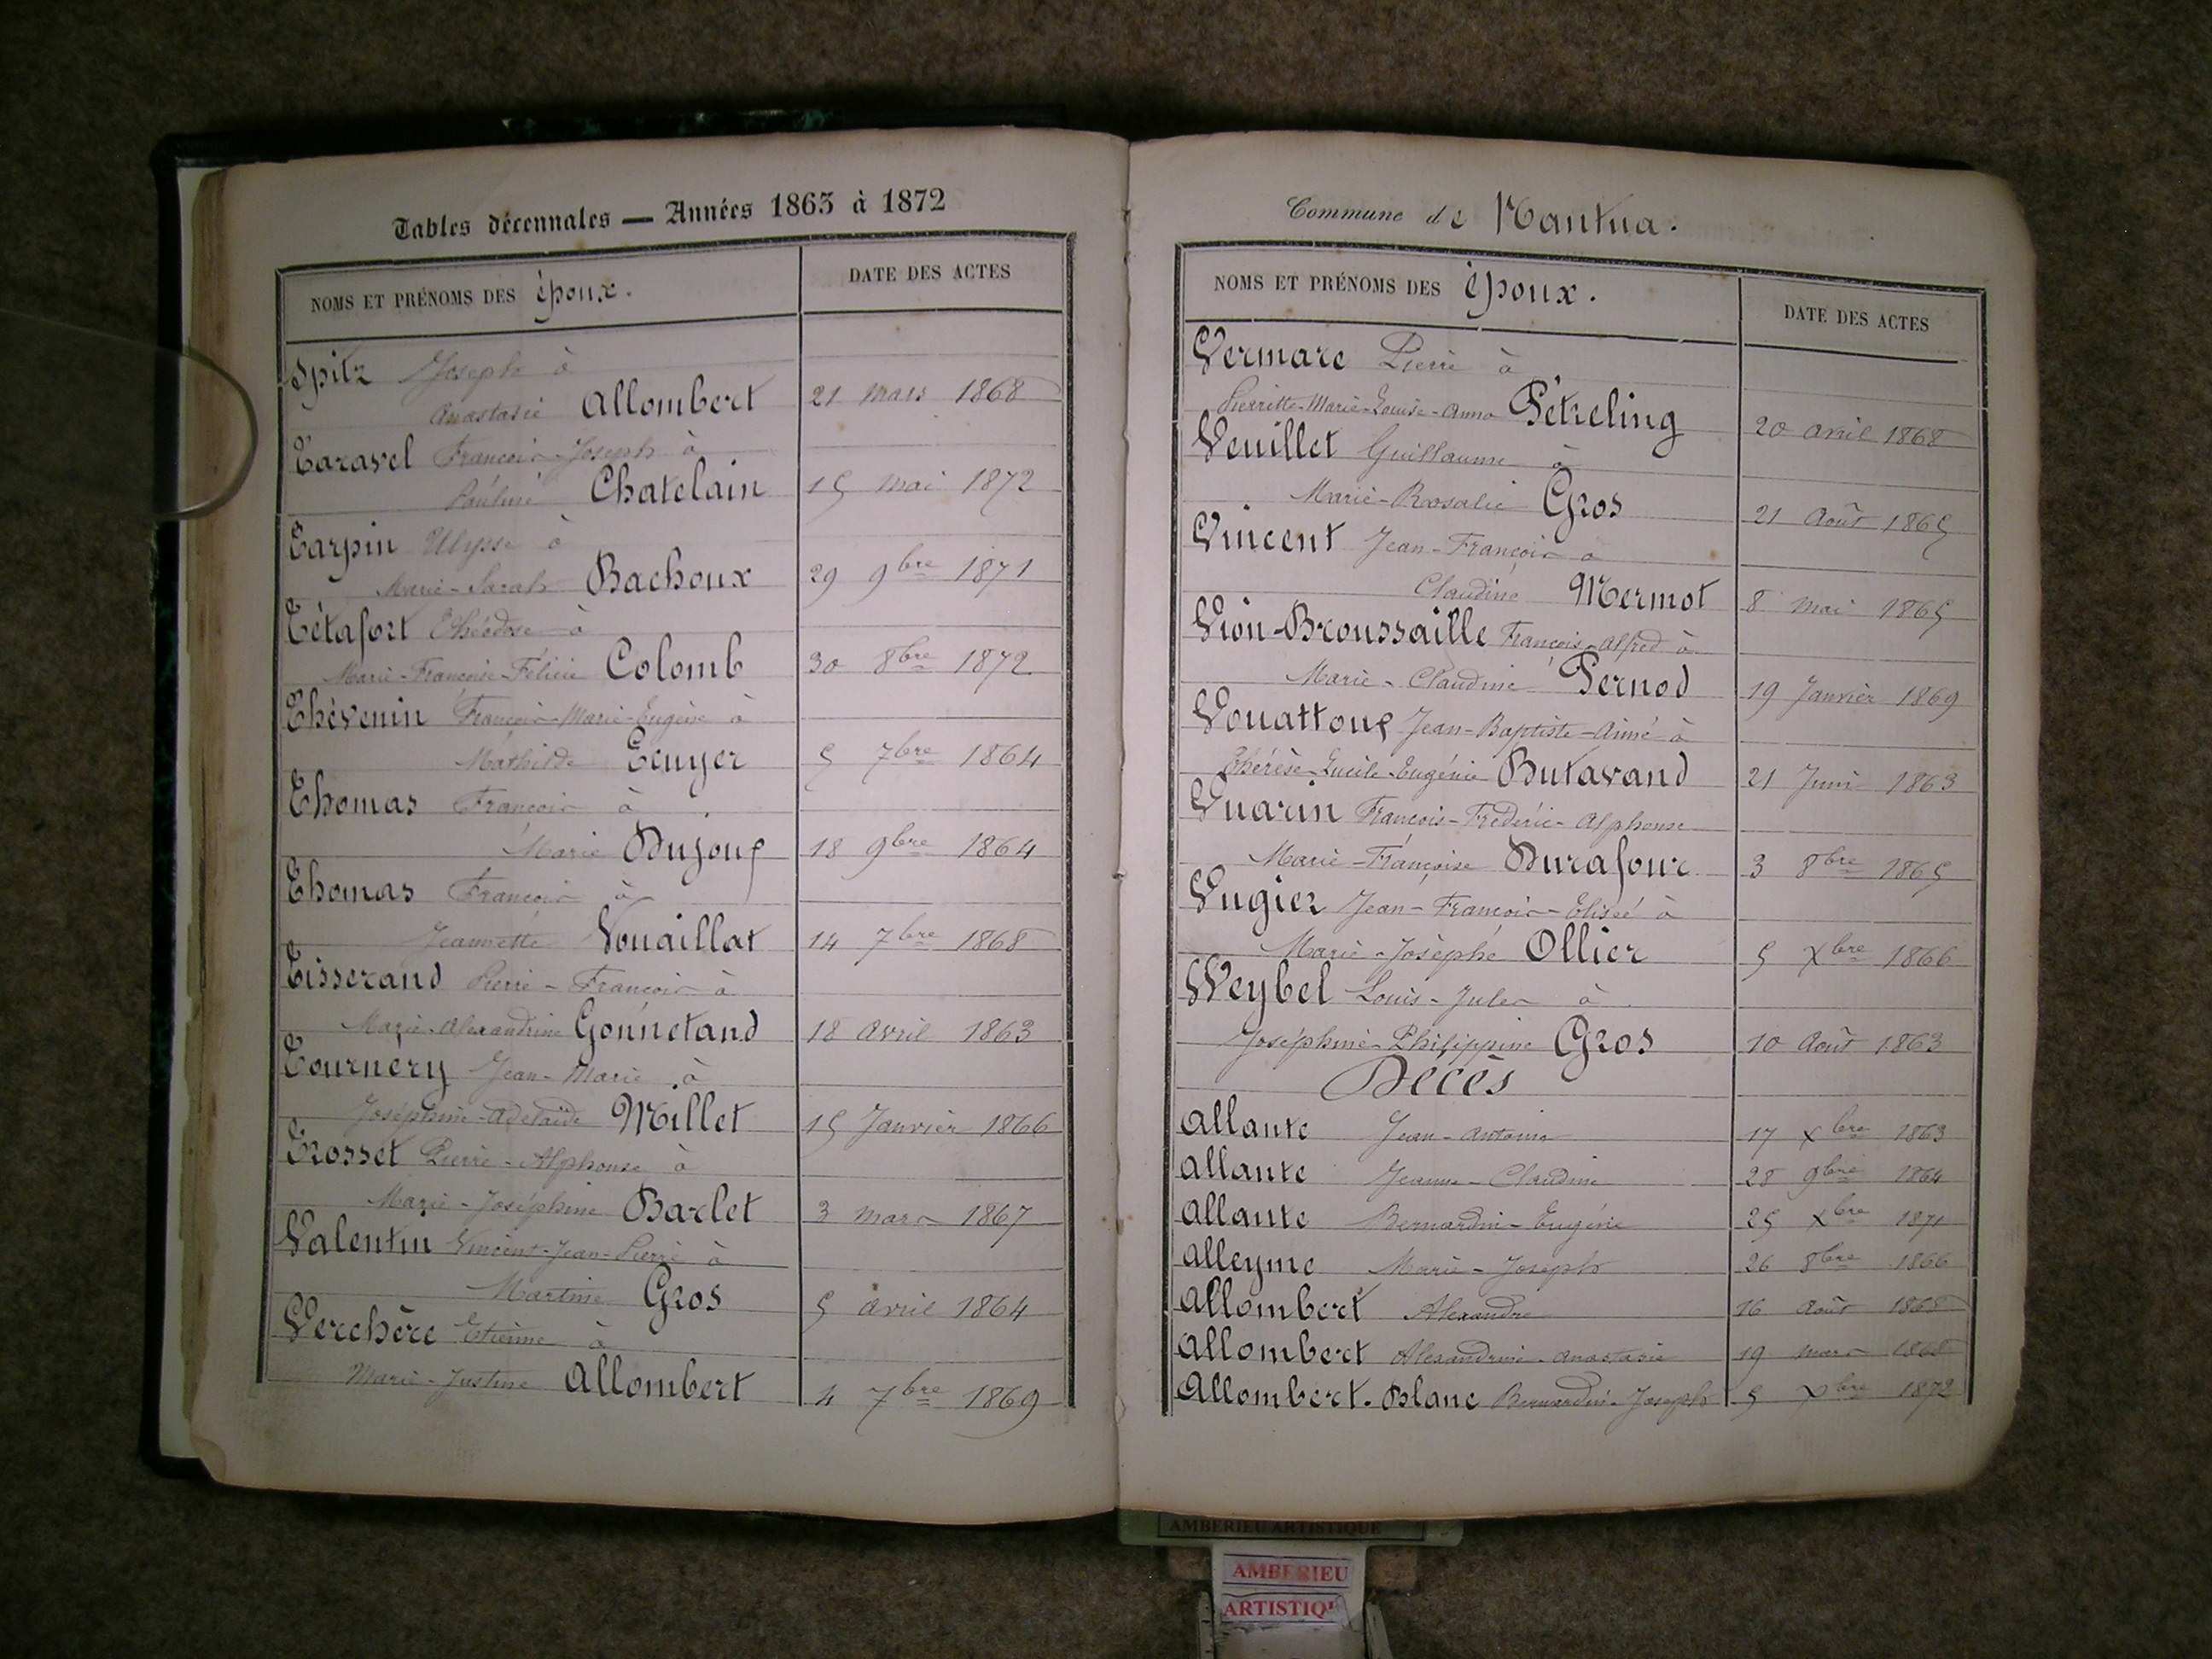 Tables décennales — Années 1863 à 1872
NOMS ET PRÉNOMS DES époux.
DATE DES ACTES
Spitz Joseph à
Anastasie Allombert 21 mars 1868
Taravel François-Joseph à
Chatelain 15 mai 1872
Tarpin Ulysse à
Marie-Sarah Bachoux 29 9bre 1871
Tétafort Théodose à
Marie-Françoise-Félicie Colomb 30 8bre 1872
Thévenin François-Marie-Eugène à
Mathilde Ecuyer 5 7bre 1864
Thomas François à
Marie Dujoux 18 9bre 1864
Thomas François à
Jeannette Vouaillat 14 7bre 1868
Tisserand Pierre-François à
Marie-Alexandrine Gonnetand 18 avril 1863
Tournéry Jean-Marie à
Joséphine-Adélaïde Millet 15 Janvier 1866
Trosset Pierre-Alphonse à
Marie-Joséphine Barlet 3 mars 1867
Valentin Vincent-Jean-Pierre à
Martine Gros 5 avril 1864
Verchère Etienne à
Marie-Justine Allombert 4 7bre 1869
Commune de Nantua.
NOMS ET PRÉNOMS DES époux.
DATE DES ACTES
Vermare Pierre à
Pierrette-Marie-Louise-Anna Pétreling 20 avril 1868
Veuillet Guillaume à
Marie-Rosalie Gros 21 Août 1865
Vincent Jean-François à
Claudine Mermot 8 mai 1865
Vion-Broussaille François-Alfred à
Marie-Claudine Pernod 19 Janvier 1869
Vouattoux Jean-Baptiste-Aimé à
Thérèse-Lucile-Eugénie Butavand 21 Juin 1863
Vuarin François-Frédéric-Alphonse
Marie-Françoise Durafour 3 8bre 1865
Vugier Jean-François-Elisée à
Marie-Josèphe Ollier 5 Xbre 1866
Weybel Louis-Jules à
Joséphine-Philippine Gros 10 Août 1863
Décès
Allante Jean-Antoine 17 Xbre 1863
Allante Jeanne-Claudine 28 9bre 1864
Allante Bernardin-Eugène 25 Xbre 1871
Alleyme Marie-Joseph 26 8bre 1866
Allombert Alexandre 16 Août 1868
Allombert Alexandrine-Anastasie 19 mars 1868
Allombert-Blanc Bernardin-Joseph 5 Xbre 1872
AMBERIEU ARTISTIQUE
AMBERIEU
ARTISTIQU